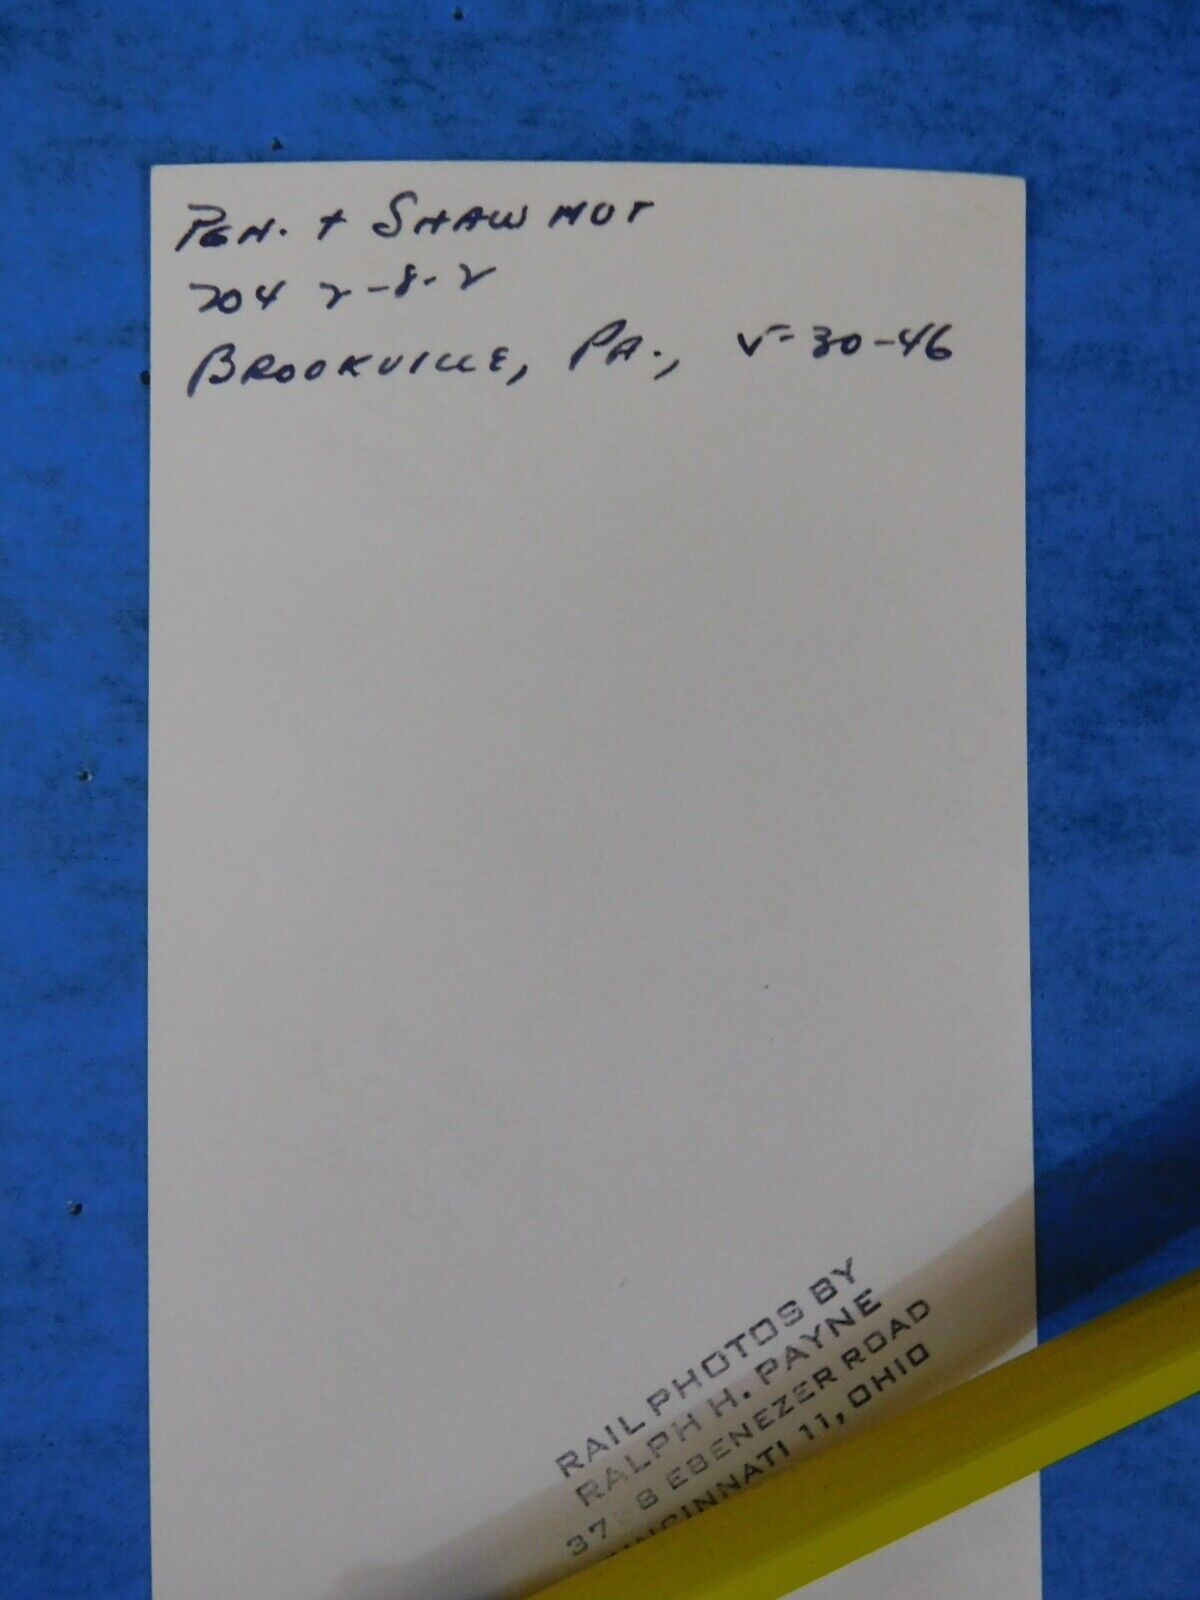 PGH. + SHAWMUT
704 2-8-2
BROOKVILLE, PA., 5-30-46
RAIL PHOTOS BY
RALPH H. PAYNE
EBENEZER ROAD
CINCINNATI 11, OHIO